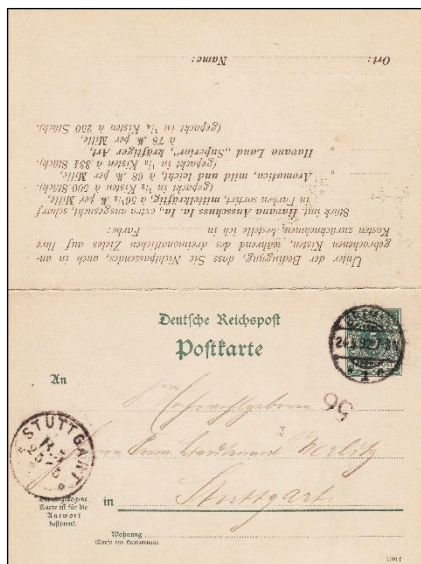 Unter der Bedingung, dass Sie Nichtpassendes, auch in an-
gebrochenen Kisten, während des dreimonatlichen Zieles auf Ihre
Kosten zurücknehmen, bestelle ich in Farbe:
Stück imt. Havana Ausschuss Ia. Ia., extra ausgesucht, scharf
in Farben sortirt, mittelkräftig, à 56½ ℳ per Mille,
(gepackt in ½ Kisten à 500 Stück),
" Aromatica, mild und leicht, à 68 ℳ per Mille,
(gepackt in ⅓ Kisten à 331 Stück),
" Havana Land „Superior“, kräftiger Art,
à 78 ℳ per Mille,
(gepackt in ¼ Kisten à 250 Stück).
Ort: Name:
Deutsche Reichspost
Postkarte
An
Hochwohlgeboren
56
Herrn
STUTTGART
Stuttgart
in
Die angebogene
Karte ist für die
Antwort
bestimmt.
Wohnung
(Straße und Hausnummer)